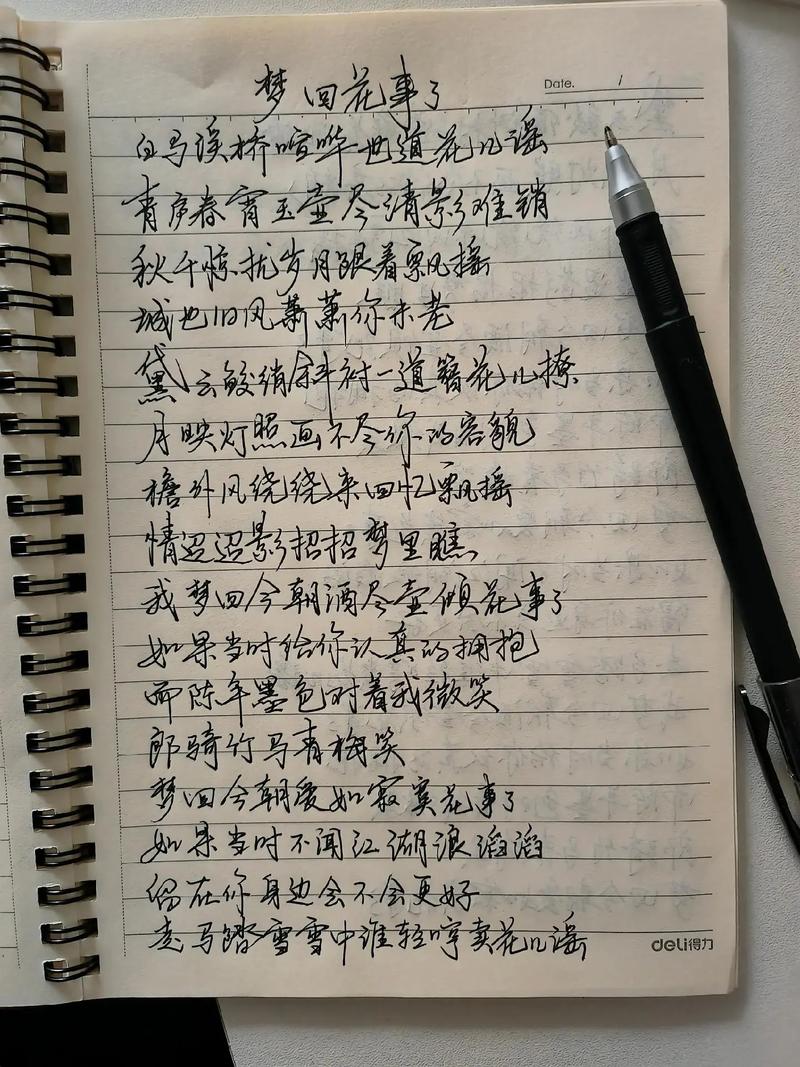 梦回花事了
Date. /
白马溪桥喧哗一地道花儿谣
青庐春宵玉壶尽清影难销
秋千惊扰岁月跟着飘摇
城也旧风萧萧你未老
黛云鲛绡斜衬一道簪花儿撩
月映灯照画不尽你的容貌
檐外风绕绕来回忆飘摇
情迢迢影招招梦里瞧
我梦回今朝酒尽壶倾花事了
如果当时给你认真的拥抱
而陈年墨色对着我微笑
郎骑竹马青梅笑
梦回今朝爱如寂寞花事了
如果当时不闻江湖浪滔滔
留在你身边会不会更好
走马踏雪雪中谁轻哼卖花儿谣
deli得力